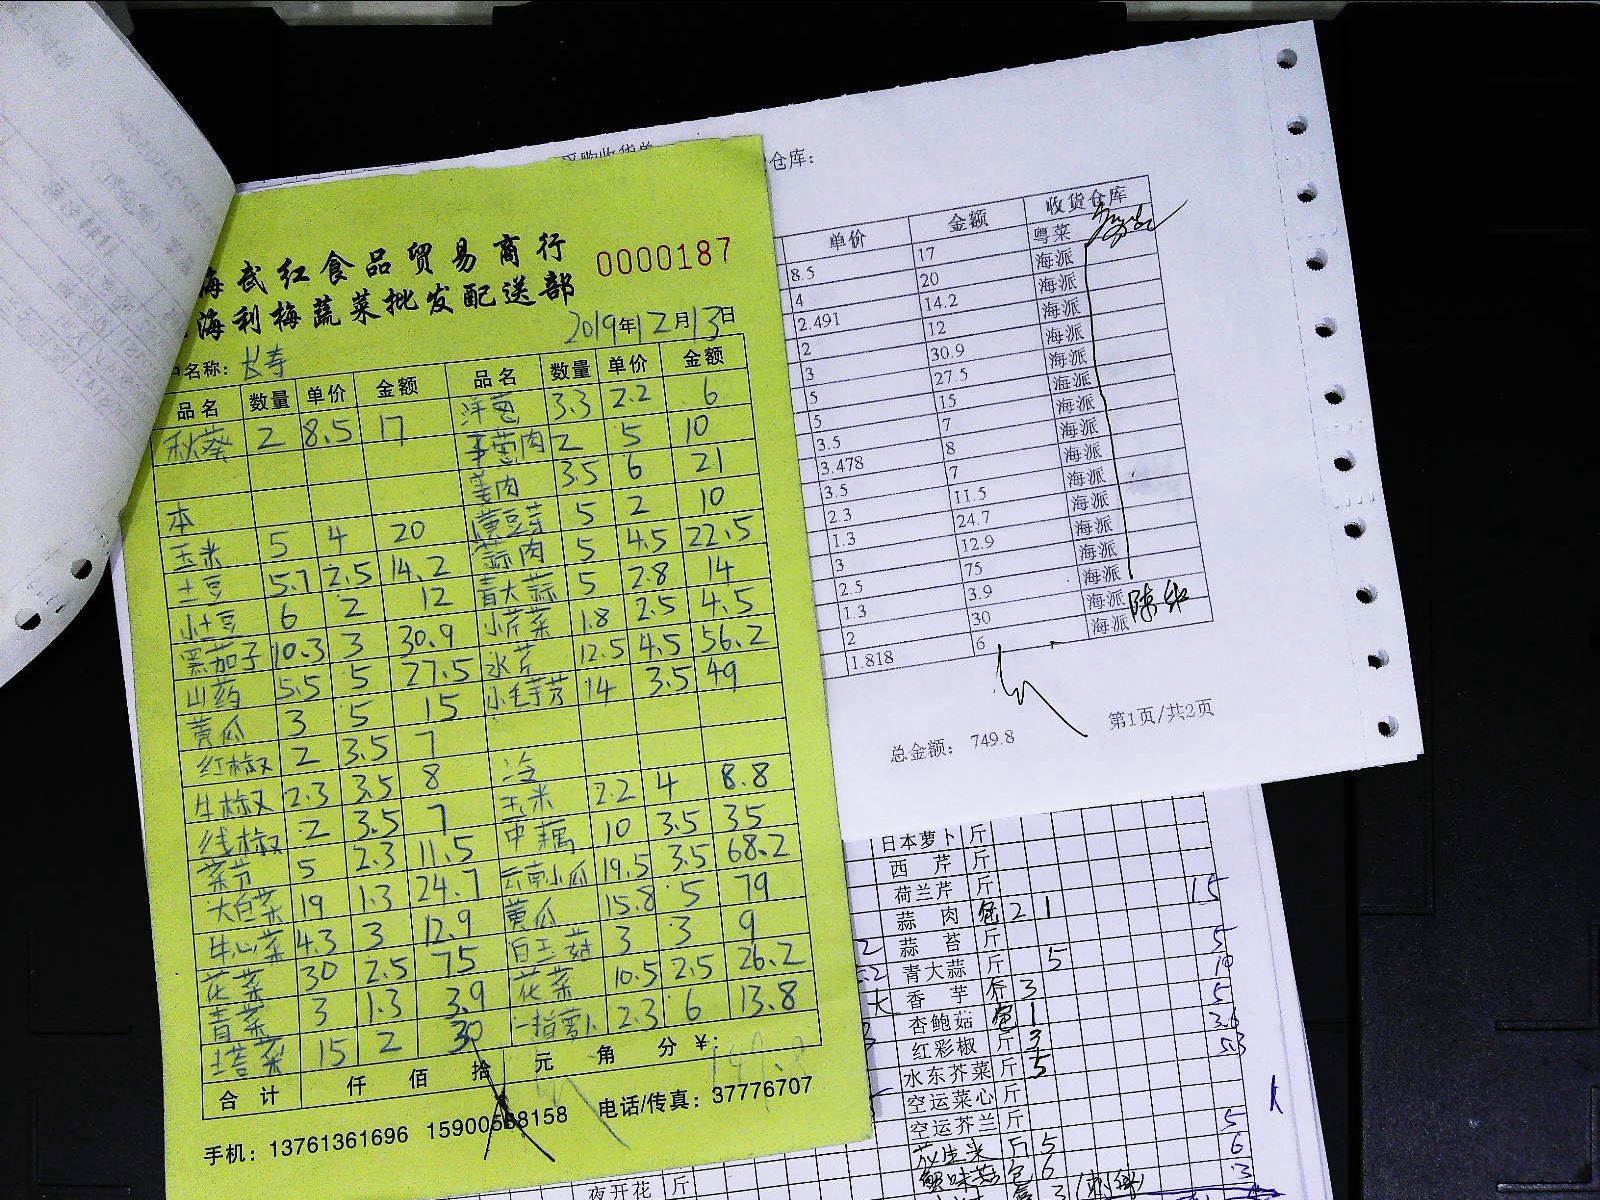 海武红食品贸易商行
海利梅蔬菜批发配送部
0000187
2019年12月13日
名称：长寿
品名 数量 单价 金额 品名 数量 单价 金额
秋葵 2 8.5 17 洋葱 3.3 2.2 6
葱肉 2 5 10
姜肉 3.5 6 21
本 豆芽 5 2 10
玉米 5 4 20 蒜肉 5 4.5 22.5
土豆 5.7 2.5 14.2 青大蒜 5 2.8 14
小土豆 6 2 12 小芹菜 1.8 2.5 4.5
黑茄子 10.3 3 30.9 水芹 12.5 4.5 56.2
山药 5.5 5 27.5 小毛芋艿 14 3.5 49
黄瓜 3 5 15
红椒 2 3.5 7 冷
牛椒 2.3 3.5 8 玉米 2.2 4 8.8
线椒 2 3.5 7 中藕 10 3.5 35
菜苋 5 2.3 11.5 云南小瓜 19.5 3.5 68.2
大白菜 19 1.3 24.7 黄瓜 15.8 5 79
牛心菜 4.3 3 12.9 白玉菇 3 3 9
花菜 30 2.5 75 花菜 10.5 2.5 26.2
青菜 3 1.3 3.9 一指萝卜 2.3 6 13.8
塔菜 15 2 30
合计 仟 佰 拾 元 角 分 ￥：
手机：13761361696 15900568158 电话/传真：37776707
采购收货单
仓库：
单价 金额 收货仓库
8.5 17 粤菜
4 20 海派
2.491 14.2 海派
2 12 海派
3 30.9 海派
5 27.5 海派
5 15 海派
3.5 7 海派
3.478 8 海派
3.5 7 海派
2.3 11.5 海派
1.3 24.7 海派
3 12.9 海派
2.5 75 海派
1.3 3.9 海派
2 30 海派
1.818 6 海派
总金额： 749.8
第1页/共2页
日本萝卜 斤
西芹 斤
荷兰芹 斤 15
蒜肉 包 2 1
蒜苔 斤 5
青大蒜 斤 5 10
香芋 斤 3 5
杏鲍菇 包 1 3.6
红彩椒 斤 3 5.3
水东芥菜 斤 5
空运菜心 斤
空运芥兰 斤 5
花生米 斤 5 6
蟹味菇 包 6 3
夜开花 斤